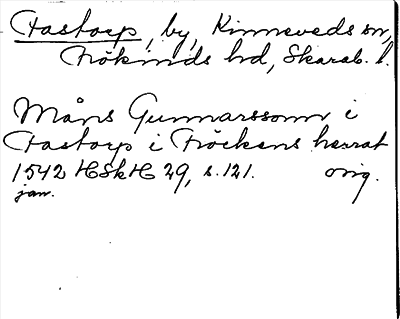 Fastorp, by, Kinneveds sn,
Frökinds hd, Skarab. l.
Måns Gunnarssonn i
Fastorp i Fröckens herrat
1542 HSkH 29, s. 121. orig.
jan.